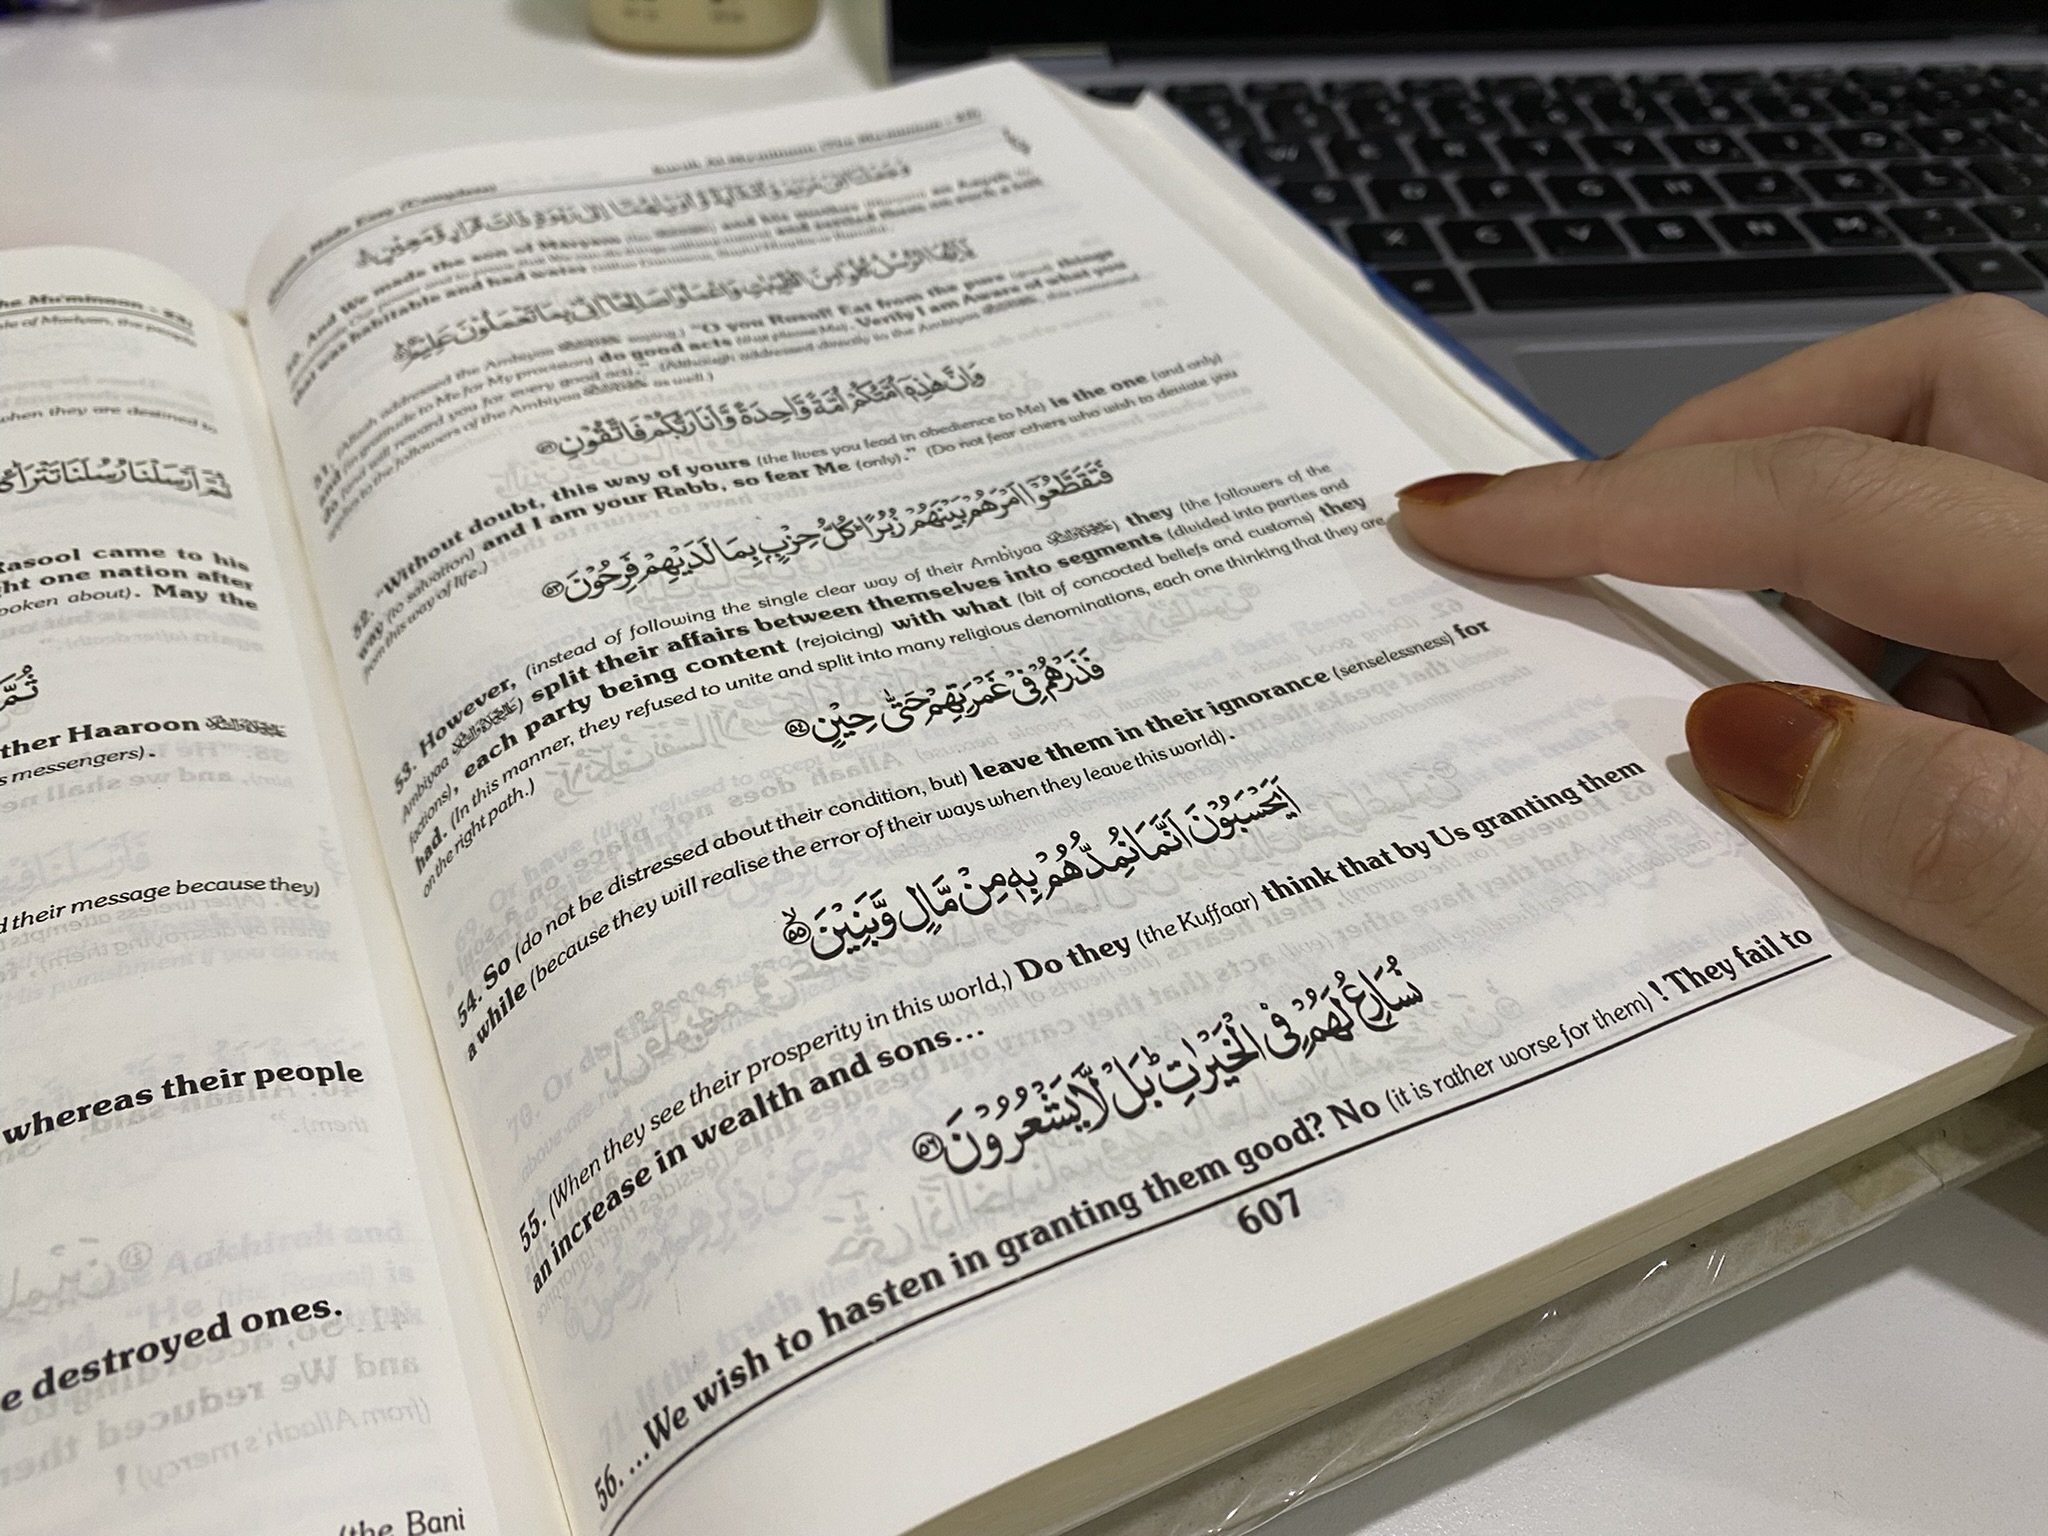 he Mu'minoon - 23)
when they are destined to
ثُمَّ اَرْسَلْنَا رُسُلَنَا تَتْرَا
Rasool came to his
ght one nation after
poken about). May the
ثُمَّ
ther Haaroon
s messengers).
d their message because they)
whereas their people
e destroyed ones.
(the Bani
Made Easy (Complete)
Surah Al-Mu'minoon (The Mu'minoon - 23)
50. And We made the son of Maryam and his mother an Aayah
and settled them on such a hill
that was habitable and had water
يٰٓاَيُّهَا الرُّسُلُ كُلُوْا مِنَ الطَّيِّبٰتِ وَاعْمَلُوْا صَالِحًا اِنِّيْ بِمَا تَعْمَلُوْنَ عَلِيْمٌ
51. (Allaah addressed the Ambiyaa saying,) "O you Rusul! Eat from the pure (good) things
and (in gratitude to Me for My provision) do good acts (that please Me). Verily I am Aware of what you
do (and will reward you for every good act)." (Although addressed directly to the Ambiyaa
applies to the followers of the Ambiyaa as well.)
وَاِنَّ هٰذِهٖٓ اُمَّتُكُمْ اُمَّةً وَّاحِدَةً وَّاَنَا رَبُّكُمْ فَاتَّقُوْنِ ﴿٥٢﴾
52. "Without doubt, this way of yours (the lives you lead in obedience to Me) is the one (and only)
way (to salvation) and I am your Rabb, so fear Me (only)." (Do not fear others who wish to deviate you
from this way of life.)
فَتَقَطَّعُوْٓا اَمْرَهُمْ بَيْنَهُمْ زُبُرًا ؕ كُلُّ حِزْبٍۭ بِمَا لَدَيْهِمْ فَرِحُوْنَ ﴿٥٣﴾
53. However, (instead of following the single clear way of their Ambiyaa ) they (the followers of the
Ambiyaa ) split their affairs between themselves into segments (divided into parties and
factions), each party being content (rejoicing) with what (bit of concocted beliefs and customs) they
had. (In this manner, they refused to unite and split into many religious denominations, each one thinking that they are
on the right path.)
فَذَرْهُمْ فِيْ غَمْرَتِهِمْ حَتّٰى حِيْنٍ ﴿٥٤﴾
54. So (do not be distressed about their condition, but) leave them in their ignorance (senselessness) for
a while (because they will realise the error of their ways when they leave this world).
اَيَحْسَبُوْنَ اَنَّمَا نُمِدُّهُمْ بِهٖ مِنْ مَّالٍ وَّبَنِيْنَ ﴿٥٥﴾
55. (When they see their prosperity in this world,) Do they (the Kuffaar) think that by Us granting them
an increase in wealth and sons...
نُسَارِعُ لَهُمْ فِي الْخَيْرٰتِ ؕ بَلْ لَّا يَشْعُرُوْنَ ﴿٥٦﴾
56. ...We wish to hasten in granting them good? No (it is rather worse for them)! They fail to
607